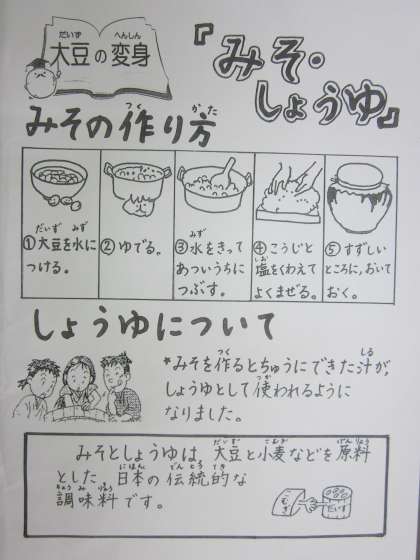 大豆の変身
『みそ・
しょうゆ』
みその作り方
①大豆を水に
つける。
②ゆでる。
③水をきって
あついうちに
つぶす。
④こうじと
塩をくわえて
よくまぜる。
⑤すずしい
ところに、おいて
おく。
しょうゆについて
*みそを作るとちゅうにできた汁が、
しょうゆとして使われるように
なりました。
みそとしょうゆは、大豆と小麦などを原料
とした日本の伝統的な
調味料です。
こむぎ
だいず